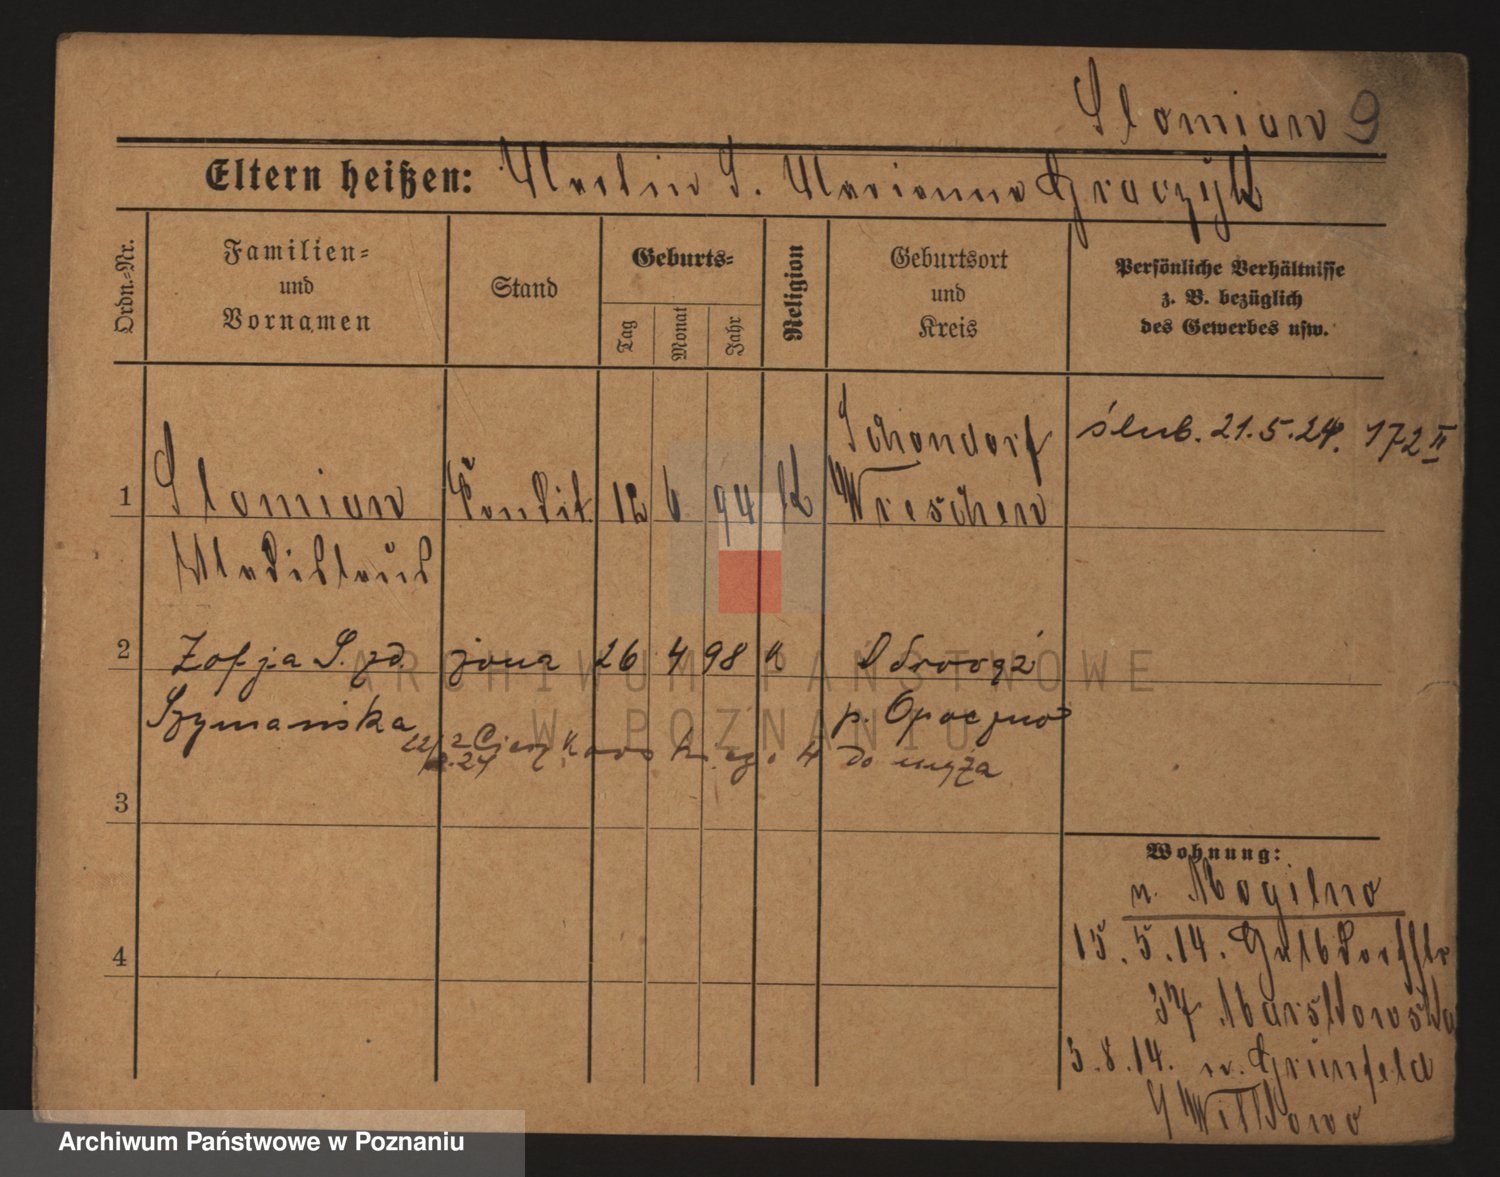 Slomian 9
Eltern heißen: Martin S. Marianna Graczyk
Ordn.-Nr.
Familien-
und
Vornamen
Stand
Geburts-
Tag
Monat
Jahr
Religion
Geburtsort
und
Kreis
Persönliche Verhältnisse
z. B. bezüglich
des Gewerbes usw.
Schondorf
ślub. 21.5.24. 172 II
1 Slomian Kondit. 12 6 94 k Wreschen
Wladislaus
2 Zofja S. żona 26 4 98 K Odrowąż
Szymańska p. Opoczno
22/2 24 do męża
3
4
Wohnung:
n. Mogilno
15.5.14.
37
3.8.14. n. Grünfeld
Witkowo
ARCHIWUM PAŃSTWOWE
W POZNANIU
Archiwum Państwowe w Poznaniu